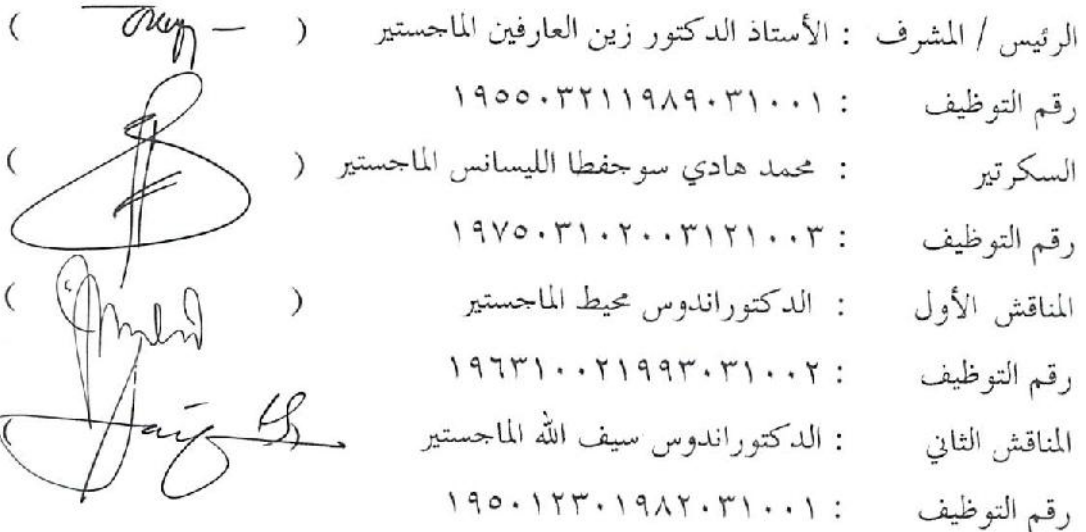 الرئيس / المشرف : الأستاذ الدكتور زين العارفين الماجستير ( )
رقم التوظيف : ١٩٥٥٠٣٢١١٩٨٩٠٣١٠٠١
السكرتير : محمد هادي سوجفطا الليسانس الماجستير ( )
رقم التوظيف : ١٩٧٥٠٣١٠٢٠٠٣١٢١٠٠٣
المناقش الأول : الدكتوراندوس محيط الماجستير ( )
رقم التوظيف : ١٩٦٣١٠٠٢١٩٩٣٠٣١٠٠٢
المناقش الثاني : الدكتوراندوس سيف الله الماجستير (
رقم التوظيف : ١٩٥٠١٢٣٠١٩٨٢٠٣١٠٠١